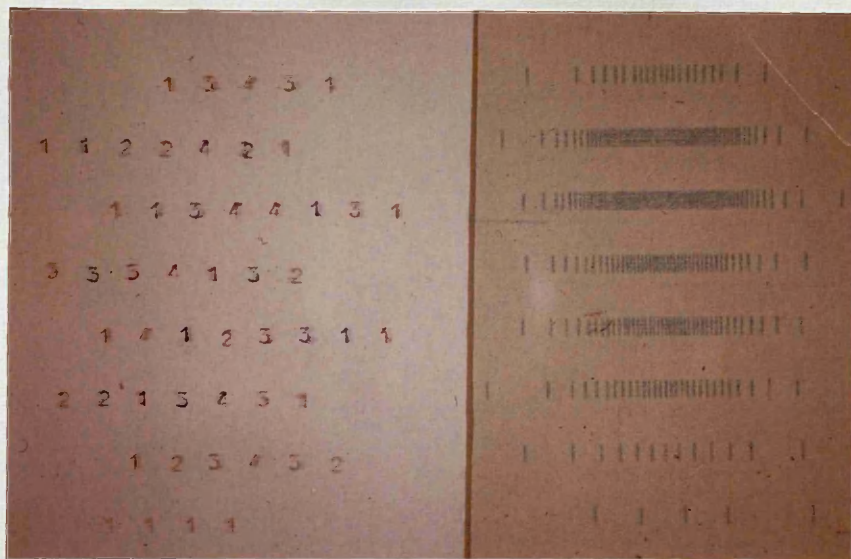 1 3 4 3 1
1 1 2 2 4 2 1
1 1 3 4 4 1 3 1
3 3 3 4 1 3 2
1 4 1 2 3 3 1 1
2 2 1 3 4 3 1
1 2 3 4 3 2
1 1 1 1